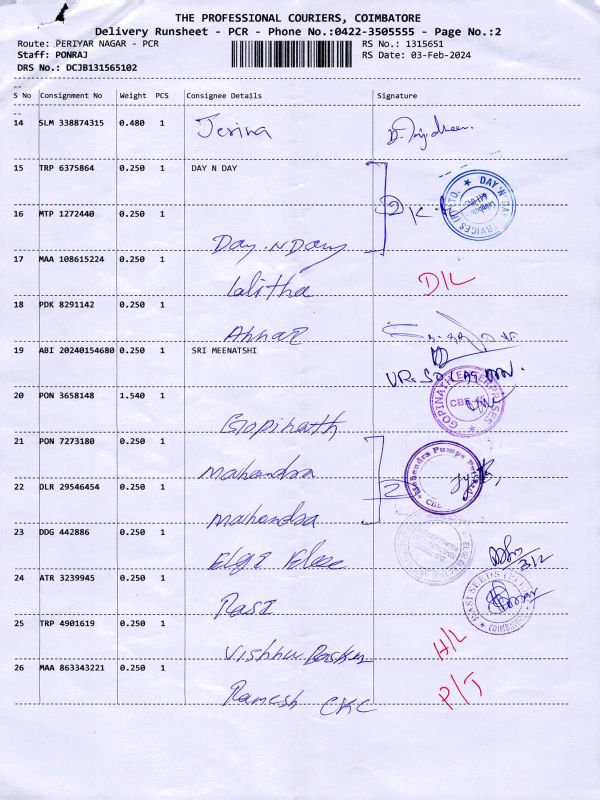 THE PROFESSIONAL COURIERS, COIMBATORE
Delivery Runsheet - PCR - Phone No.:0422-3505555 - Page No.:2
Route: PERIYAR NAGAR - PCR RS No.: 1315651
Staff: PONRAJ RS Date: 03-Feb-2024
DRS No.: DCJB131565102
S No Consignment No Weight PCS Consignee Details Signature
14 SLM 338874315 0.480 1 Jerina
15 TRP 6375864 0.250 1 DAY N DAY
16 MTP 1272440 0.250 1
Day.N Day
17 MAA 108615224 0.250 1
Lalitha D/L
18 PDK 8291142 0.250 1
19 ABI 20240154680 0.250 1 SRI MEENATSHI
20 PON 3658148 1.540 1
Gopinath GOPINATH ENTERPRISES
21 PON 7273180 0.250 1
Mahendra Mahendra Pumps
22 DLR 29546454 0.250 1
Mahendra
23 DDG 442886 0.250 1
Elgi
24 ATR 3239945 0.250 1
Rasi RASI SEEDS COIMBATORE
25 TRP 4901619 0.250 1
Vishnu H/L
26 MAA 863343221 0.250 1
Ramesh CKC P/J